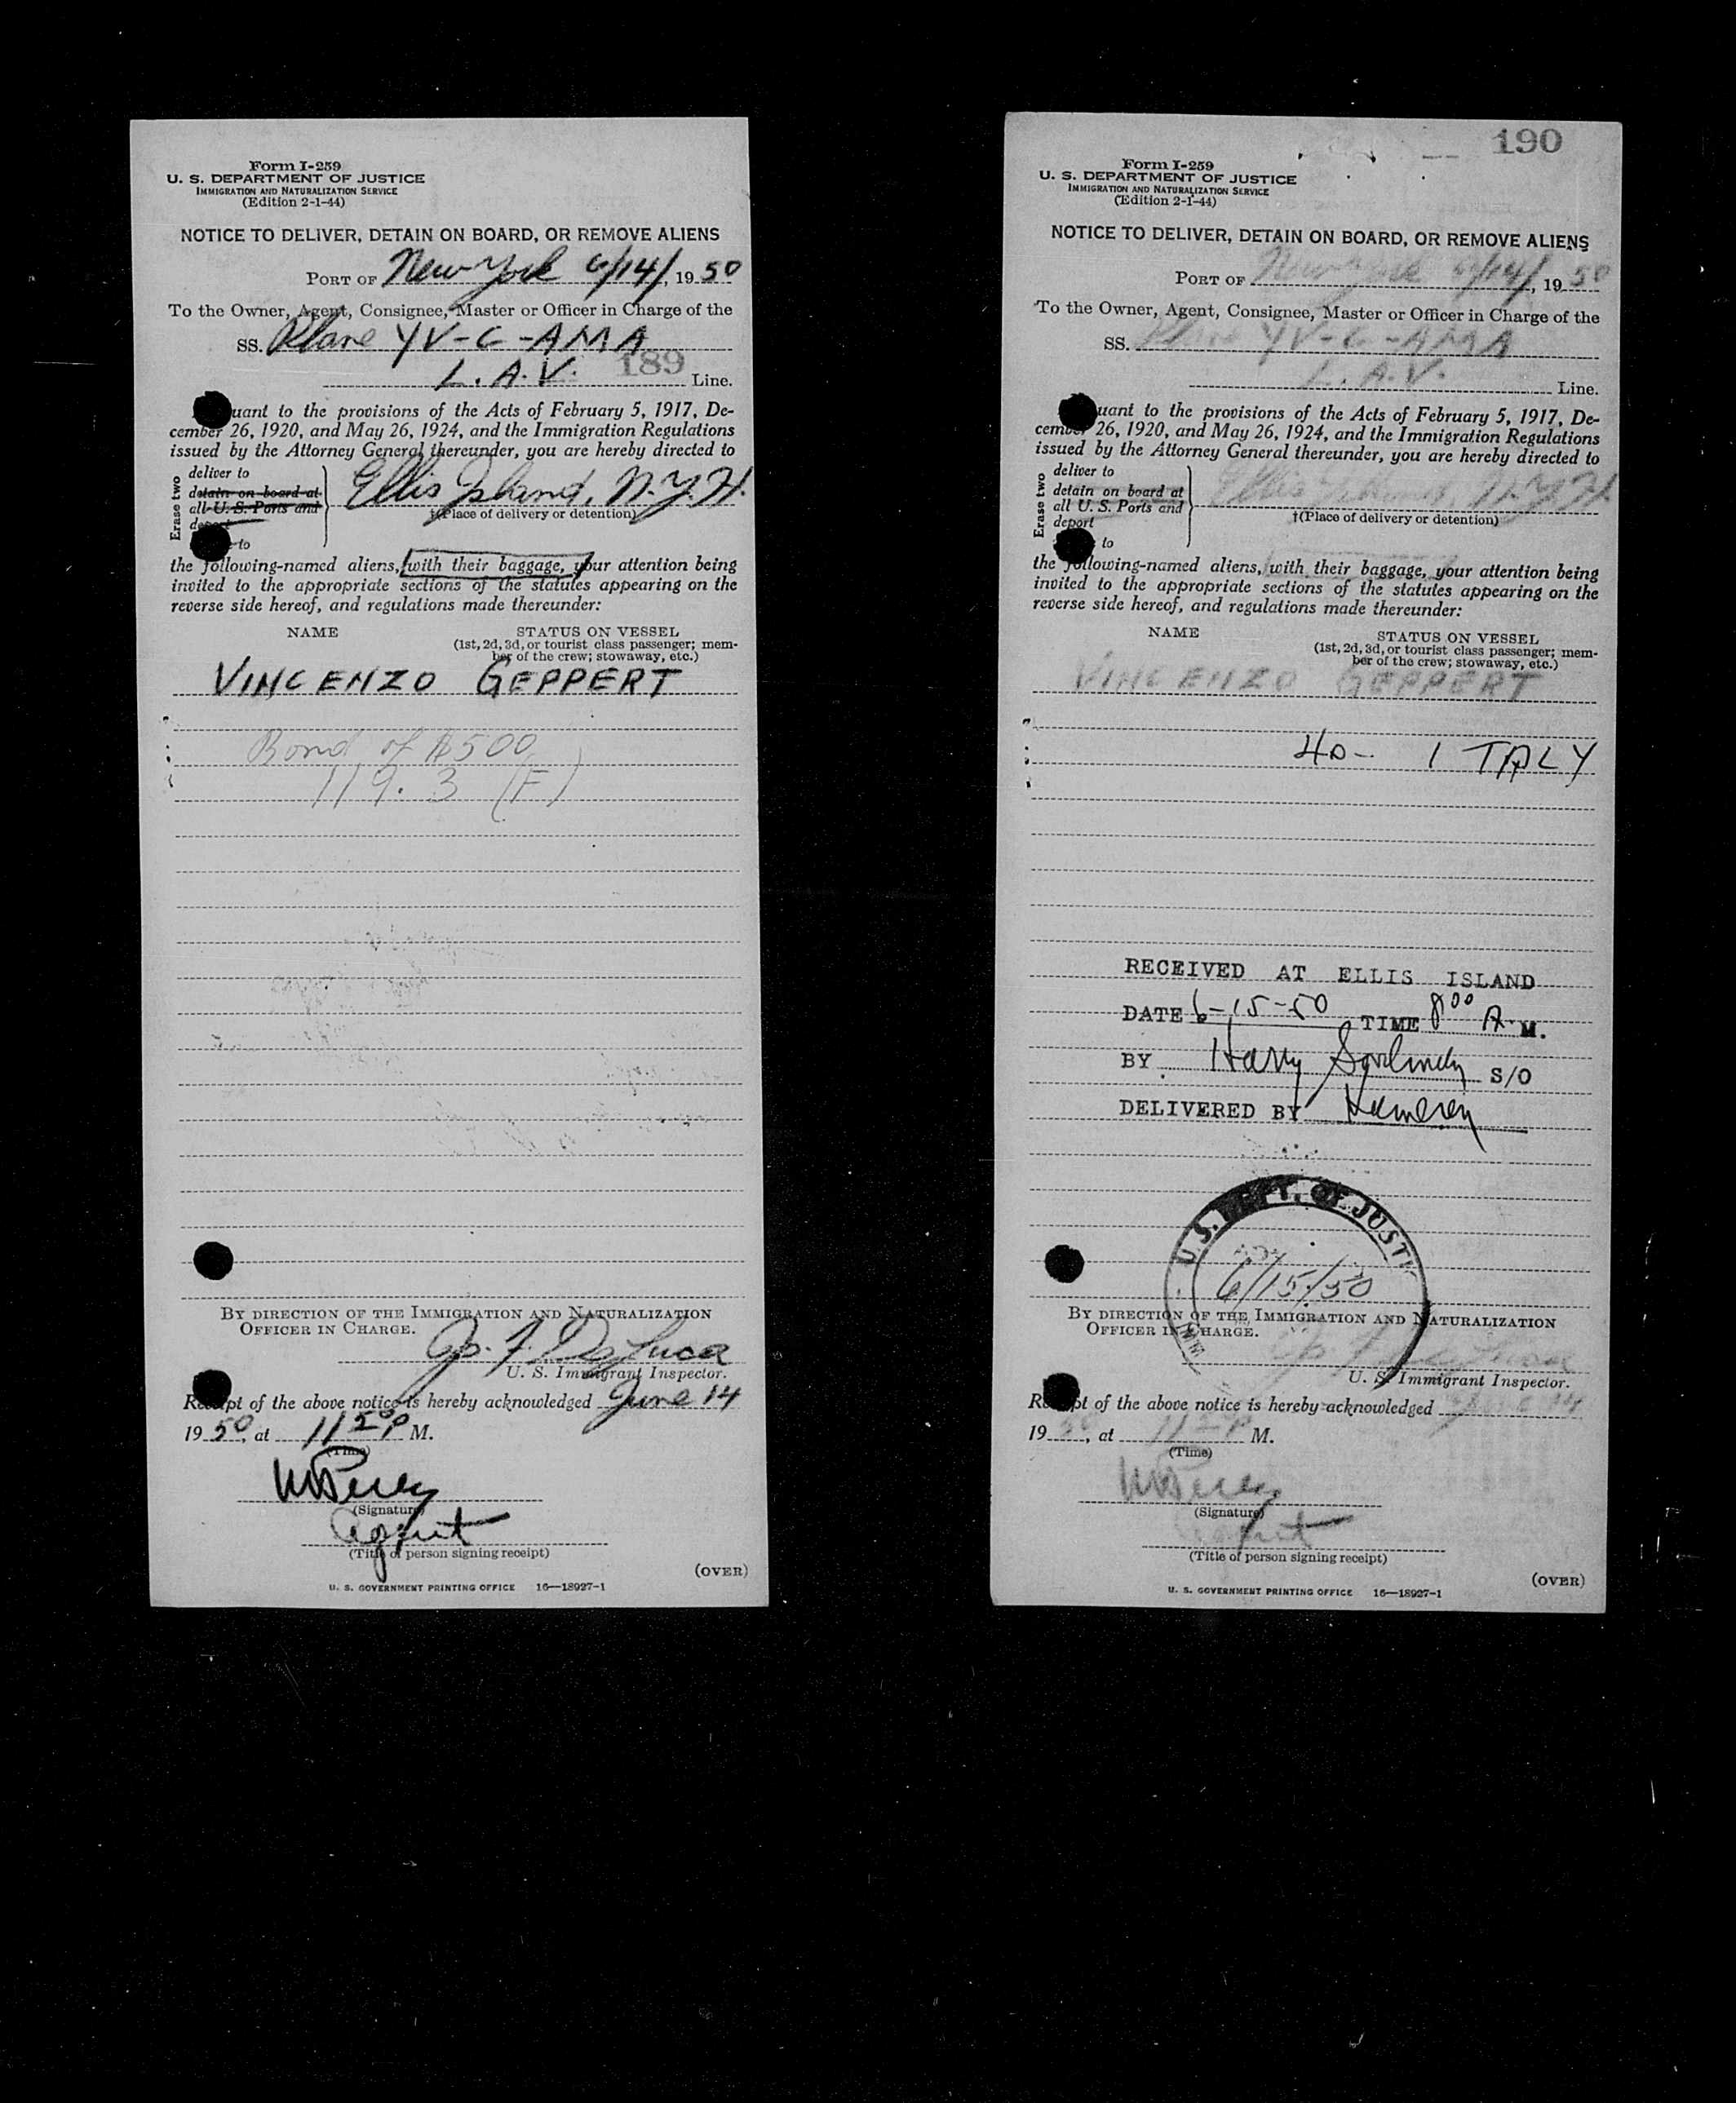 Form I-259
U. S. DEPARTMENT OF JUSTICE
IMMIGRATION AND NATURALIZATION SERVICE
(Edition 2-1-44)
NOTICE TO DELIVER, DETAIN ON BOARD, OR REMOVE ALIENS
PORT OF New York 6/14/, 19 50
To the Owner, Agent, Consignee, Master or Officer in Charge of the
SS. Plane YV-C-AMA
189
L. A. V. Line.
uant to the provisions of the Acts of February 5, 1917, De-
cember 26, 1920, and May 26, 1924, and the Immigration Regulations
issued by the Attorney General thereunder, you are hereby directed to
Erase two
deliver to
detain on board at
all U. S. Ports and
deport
to
Ellis Island, N.Y.H.
†(Place of delivery or detention)
the following-named aliens, with their baggage, your attention being
invited to the appropriate sections of the statutes appearing on the
reverse side hereof, and regulations made thereunder:
NAME STATUS ON VESSEL
(1st, 2d, 3d, or tourist class passenger; mem-
ber of the crew; stowaway, etc.)
VINCENZO GEPPERT
Bond of $500
119. 3 (F)
BY DIRECTION OF THE IMMIGRATION AND NATURALIZATION
OFFICER IN CHARGE.
Jos. F. De Luca
U. S. Immigrant Inspector.
Receipt of the above notice is hereby acknowledged June 14
19 50, at 11 50 P M.
(Time)
(Signature)
Agent
(Title of person signing receipt)
(OVER)
U. S. GOVERNMENT PRINTING OFFICE 16—18927-1
190
Form I-259
U. S. DEPARTMENT OF JUSTICE
IMMIGRATION AND NATURALIZATION SERVICE
(Edition 2-1-44)
NOTICE TO DELIVER, DETAIN ON BOARD, OR REMOVE ALIENS
PORT OF New York 6/14/, 19 50
To the Owner, Agent, Consignee, Master or Officer in Charge of the
SS. Plane YV-C-AMA
L. A. V. Line.
uant to the provisions of the Acts of February 5, 1917, De-
cember 26, 1920, and May 26, 1924, and the Immigration Regulations
issued by the Attorney General thereunder, you are hereby directed to
Erase two
deliver to
detain on board at
all U. S. Ports and
deport
to
Ellis Island, N.Y.H.
†(Place of delivery or detention)
the following-named aliens, with their baggage, your attention being
invited to the appropriate sections of the statutes appearing on the
reverse side hereof, and regulations made thereunder:
NAME STATUS ON VESSEL
(1st, 2d, 3d, or tourist class passenger; mem-
ber of the crew; stowaway, etc.)
VINCENZO GEPPERT
40- ITALY
RECEIVED AT ELLIS ISLAND
DATE 6-15-50 TIME 8 00 A. M.
BY Harry S/O
DELIVERED BY
U. S. DEPT. OF JUSTI
6/15/50
IMM
BY DIRECTION OF THE IMMIGRATION AND NATURALIZATION
OFFICER IN CHARGE.
Jos. F. De Luca
U. S. Immigrant Inspector.
Receipt of the above notice is hereby acknowledged June 14
19 50, at 11 50 P M.
(Time)
(Signature)
Agent
(Title of person signing receipt)
(OVER)
U. S. GOVERNMENT PRINTING OFFICE 16—18927-1